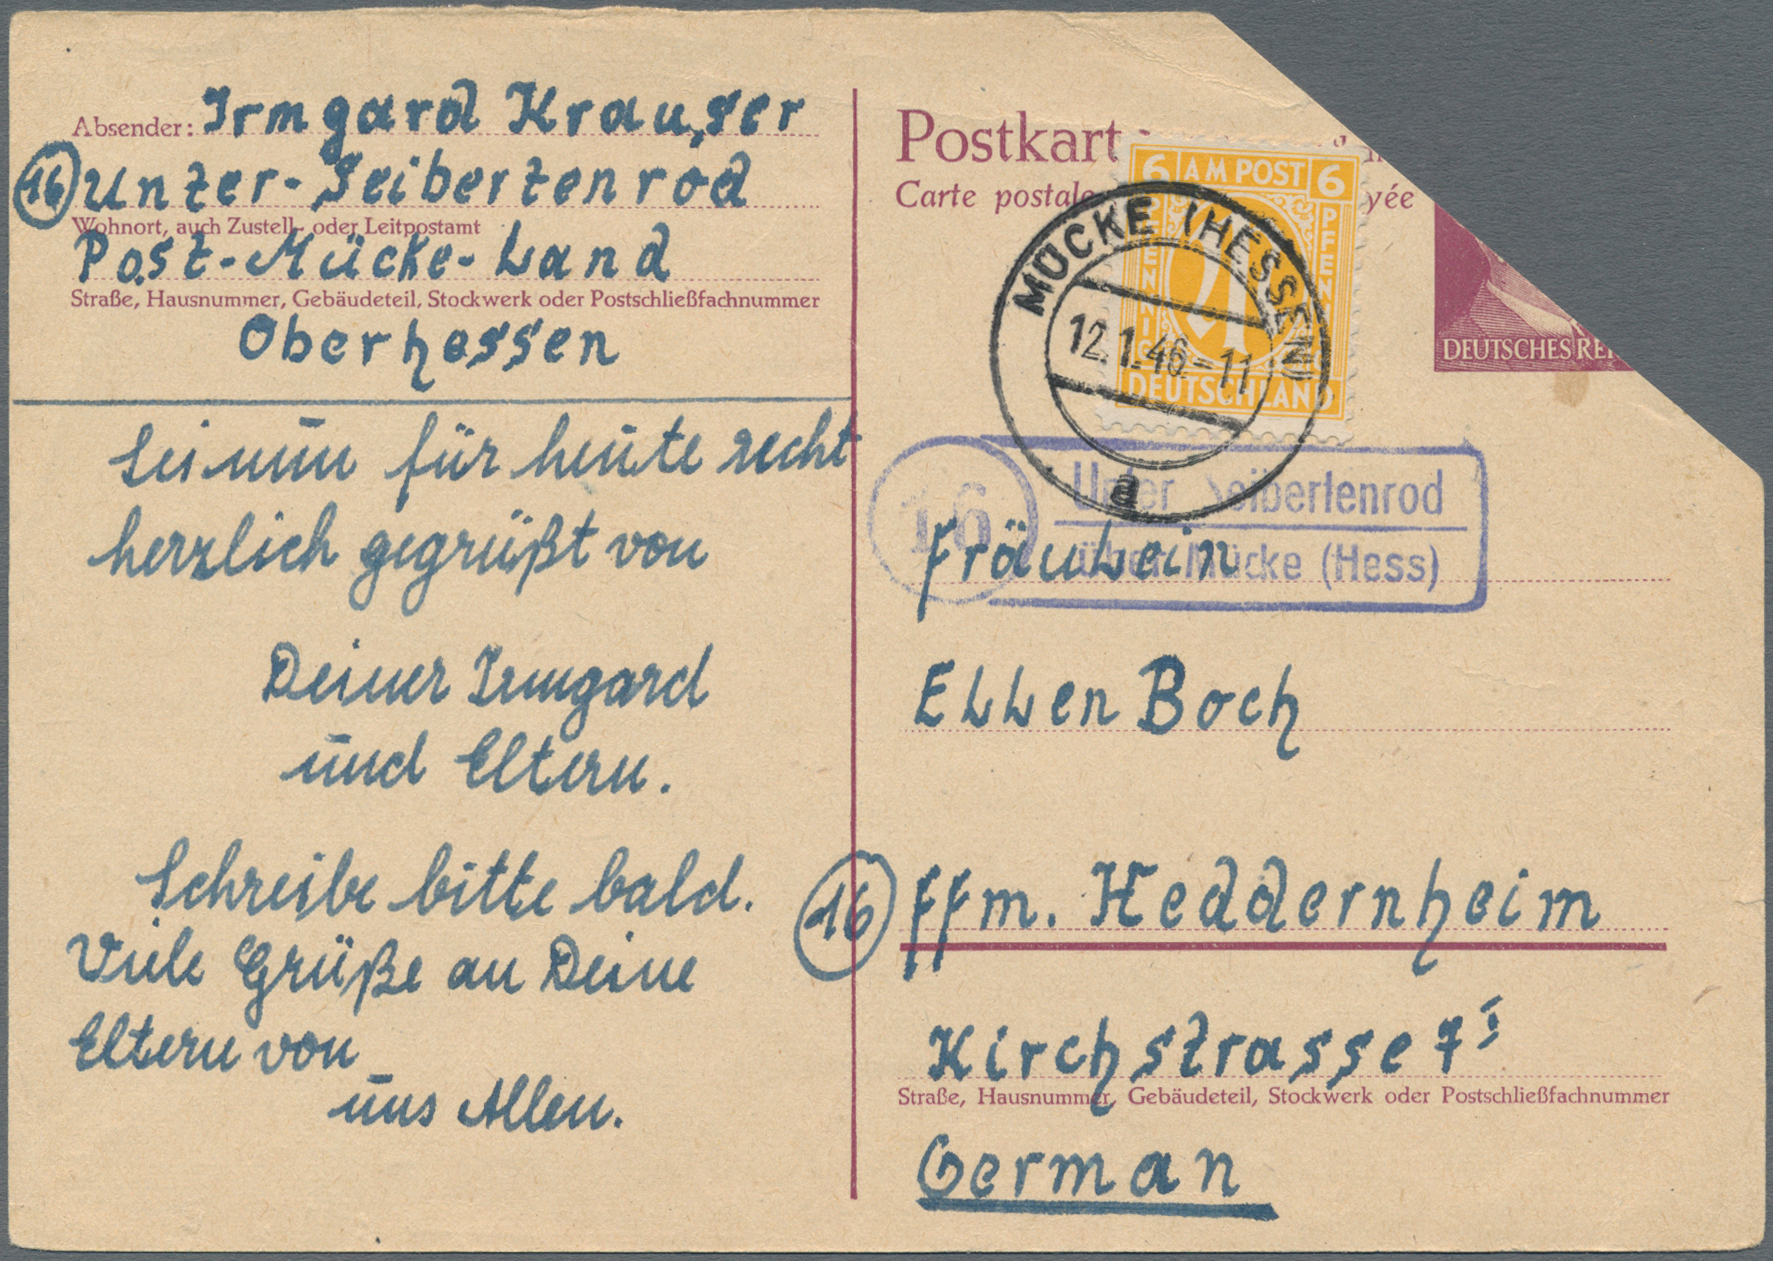 Absender: Irmgard Krauser
16 Unter-Seibertenrod
Wohnort, auch Zustell- oder Leitpostamt
Post-Mücke-Land
Straße, Hausnummer, Gebäudeteil, Stockwerk oder Postschließfachnummer
Oberhessen
Sei nun für heute recht
herzlich gegrüßt von
Deiner Irmgard
und Eltern.
Schreibe bitte bald.
Viele Grüße an Deine
Eltern von
uns Allen.
Postkart
Carte postale yée
6 AM POST 6
PFENNIG PFENNIG
DEUTSCHLAND
MÜCKE (HESSEN)
12.1.46.-11
a
DEUTSCHES REI
16 Unter Seibertenrod
über Mücke (Hess)
Fräulein
Ellen Boch
16 Ffm. Heddernheim
Kirchstrasse 7 I
Straße, Hausnummer, Gebäudeteil, Stockwerk oder Postschließfachnummer
German